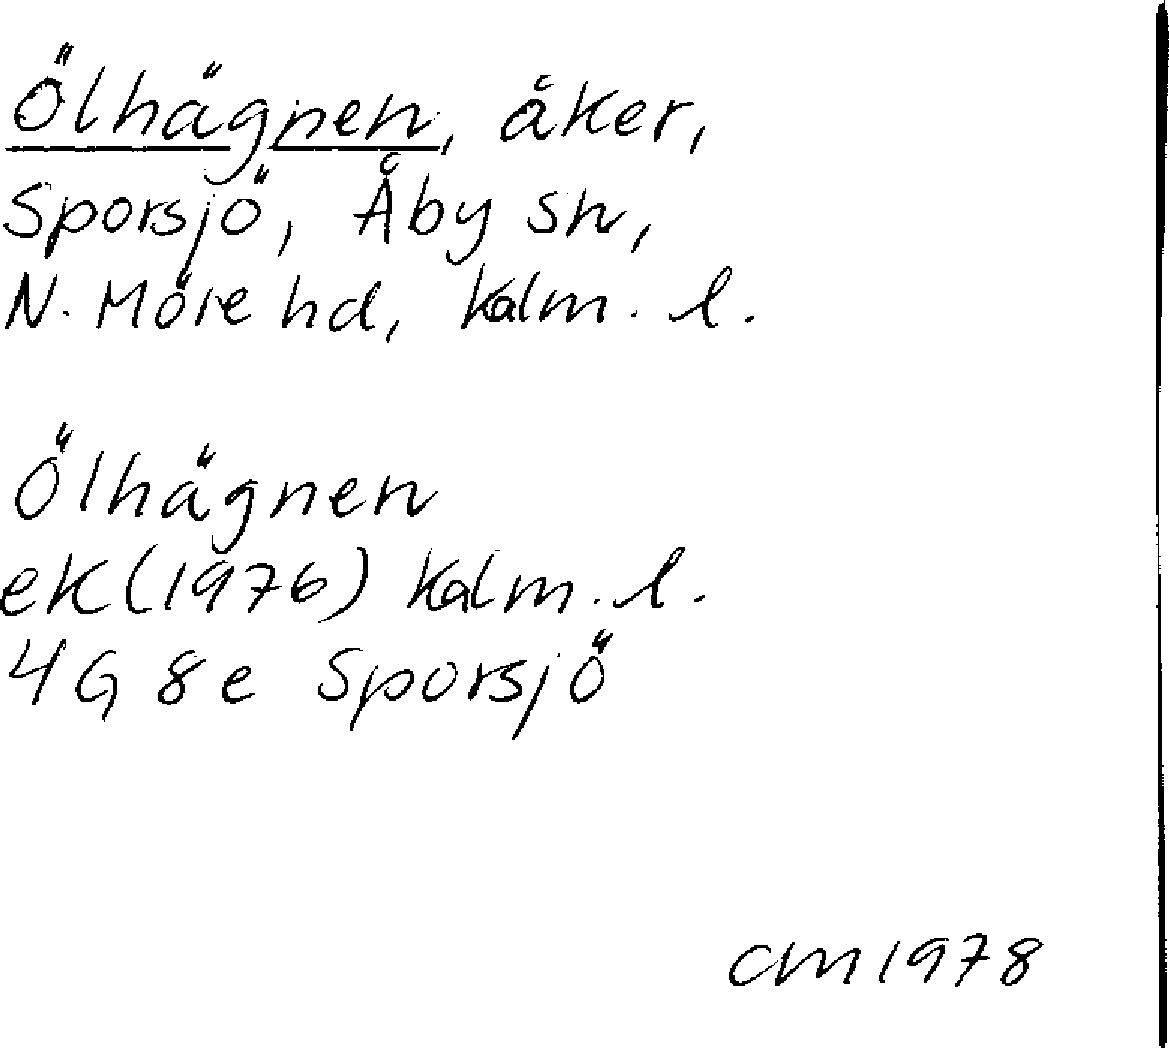 Ölhägnen, åker,
Sporsjö, Åby sn,
N. Möre hd, Kalm. l.
Ölhägnen
ek (1976) Kalm. l.
4G 8e Sporsjö
CM 1978